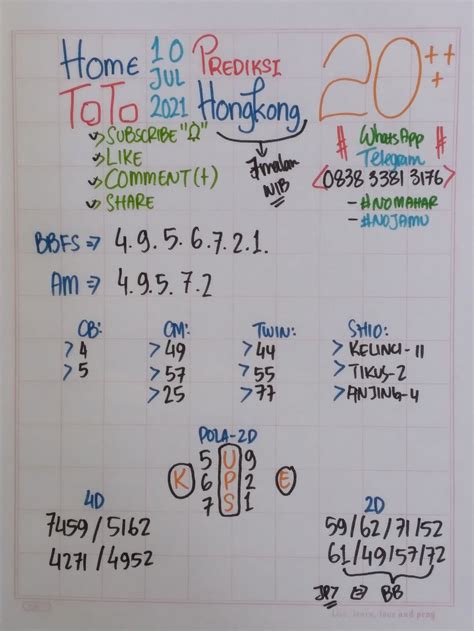 Home 10 JUL 2021 PREDIKSI 20+++
TOTO Hongkong
SUBSCRIBE "Ω"
LIKE
COMMENT (+)
SHARE
7malam
WIB
# WhatsApp #
Telegram
<0838 3381 3176>
- #NOMAHAR
- #NOJAMU
BBFS => 4.9.5.6.7.2.1.
AM => 4.9.5.7.2
CB:
> 4
> 5
CM:
> 49
> 57
> 25
TWIN:
> 44
> 55
> 77
SHIO:
> KELINCI-11
> TIKUS-2
> ANJING-4
POLA-2D
5 U 9
K 6 P 2 E
7 S 1
4D
7459 / 5162
4271 / 4952
2D
59/62/71/52
61/49/57/72
JP7 => BB
Live, learn, love and pray